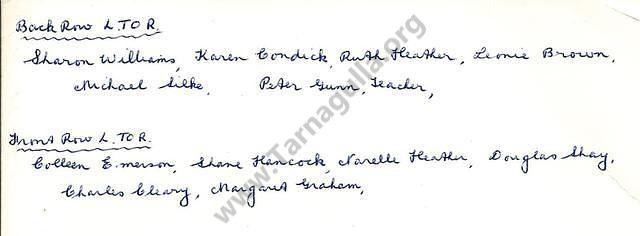 Back Row L. TO R.
Sharon Williams, Karen Condick, Ruth Heather, Leonie Brown,
Michael Silke, Peter Gunn, Teacher,
Front Row L. TO R.
Colleen Emerson, Shane Hancock, Narelle Heather, Douglas Shay,
Charles Cleary, Margaret Graham,
www.Tarnagulla.org